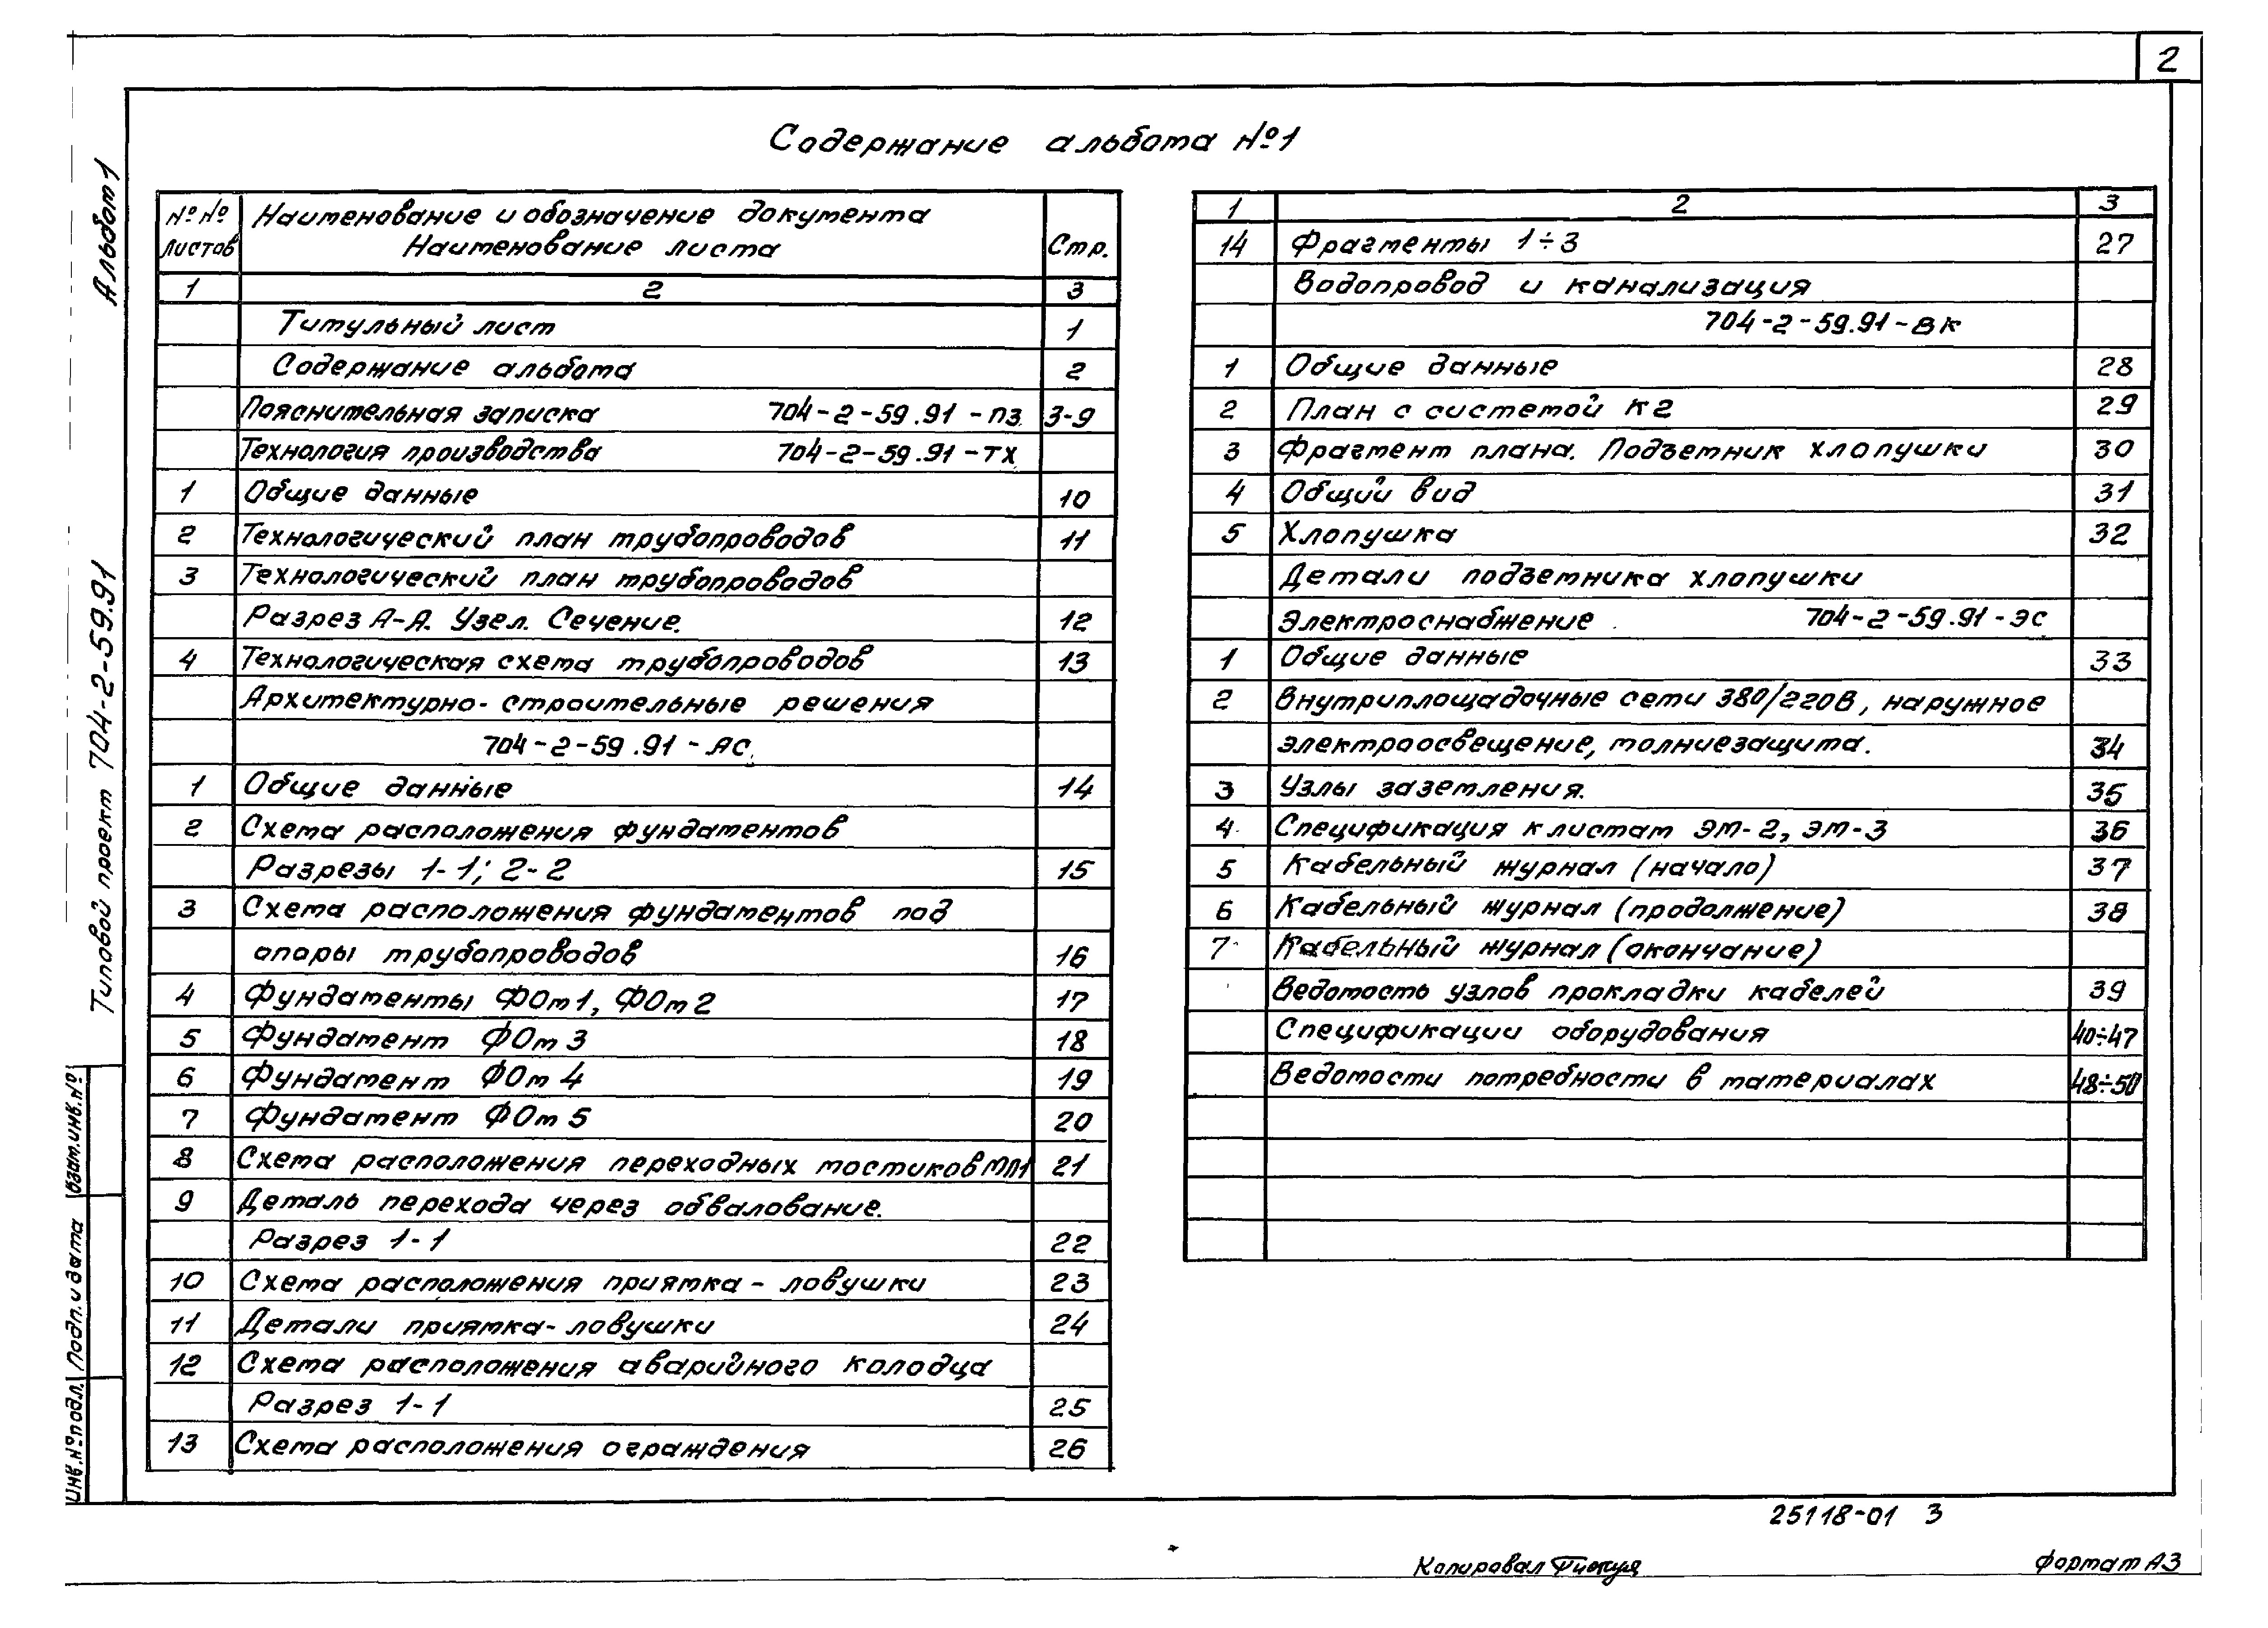 2
Содержание альбома №1
Альбом 1
Типовой проект 704-2-59.91
Взам.инв.№
Подп. и дата
Инв.№подл.
№№ листов
Наименование и обозначение документа
Наименование листа
Стр.
1 2 3
Титульный лист 1
Содержание альбома 2
Пояснительная записка 704-2-59.91-ПЗ 3-9
Технология производства 704-2-59.91-ТХ
1 Общие данные 10
2 Технологический план трубопроводов 11
3 Технологический план трубопроводов
Разрез А-А. Узел. Сечение. 12
4 Технологическая схема трубопроводов 13
Архитектурно-строительные решения
704-2-59.91-АС.
1 Общие данные 14
2 Схема расположения фундаментов
Разрезы 1-1; 2-2 15
3 Схема расположения фундаментов под
опоры трубопроводов 16
4 Фундаменты ФОм1, ФОм2 17
5 Фундамент ФОм3 18
6 Фундамент ФОм4 19
7 Фундамент ФОм5 20
8 Схема расположения переходных мостиков МП1 21
9 Деталь перехода через обвалование.
Разрез 1-1 22
10 Схема расположения приямка-ловушки 23
11 Детали приямка-ловушки 24
12 Схема расположения аварийного колодца
Разрез 1-1 25
13 Схема расположения ограждения 26
1 2 3
14 Фрагменты 1÷3 27
Водопровод и канализация
704-2-59.91-ВК
1 Общие данные 28
2 План с системой К2 29
3 Фрагмент плана. Подъемник хлопушки 30
4 Общий вид 31
5 Хлопушка 32
Детали подъемника хлопушки
Электроснабжение 704-2-59.91-ЭС
1 Общие данные 33
2 Внутриплощадочные сети 380/220В, наружное
электроосвещение, молниезащита. 34
3 Узлы заземления. 35
4 Спецификация к листам ЭМ-2, ЭМ-3 36
5 Кабельный журнал (начало) 37
6 Кабельный журнал (продолжение) 38
7 Кабельный журнал (окончание)
Ведомость узлов прокладки кабелей 39
Спецификации оборудования 40÷47
Ведомости потребности в материалах 48÷50
25118-01 3
Копировал
Формат А3